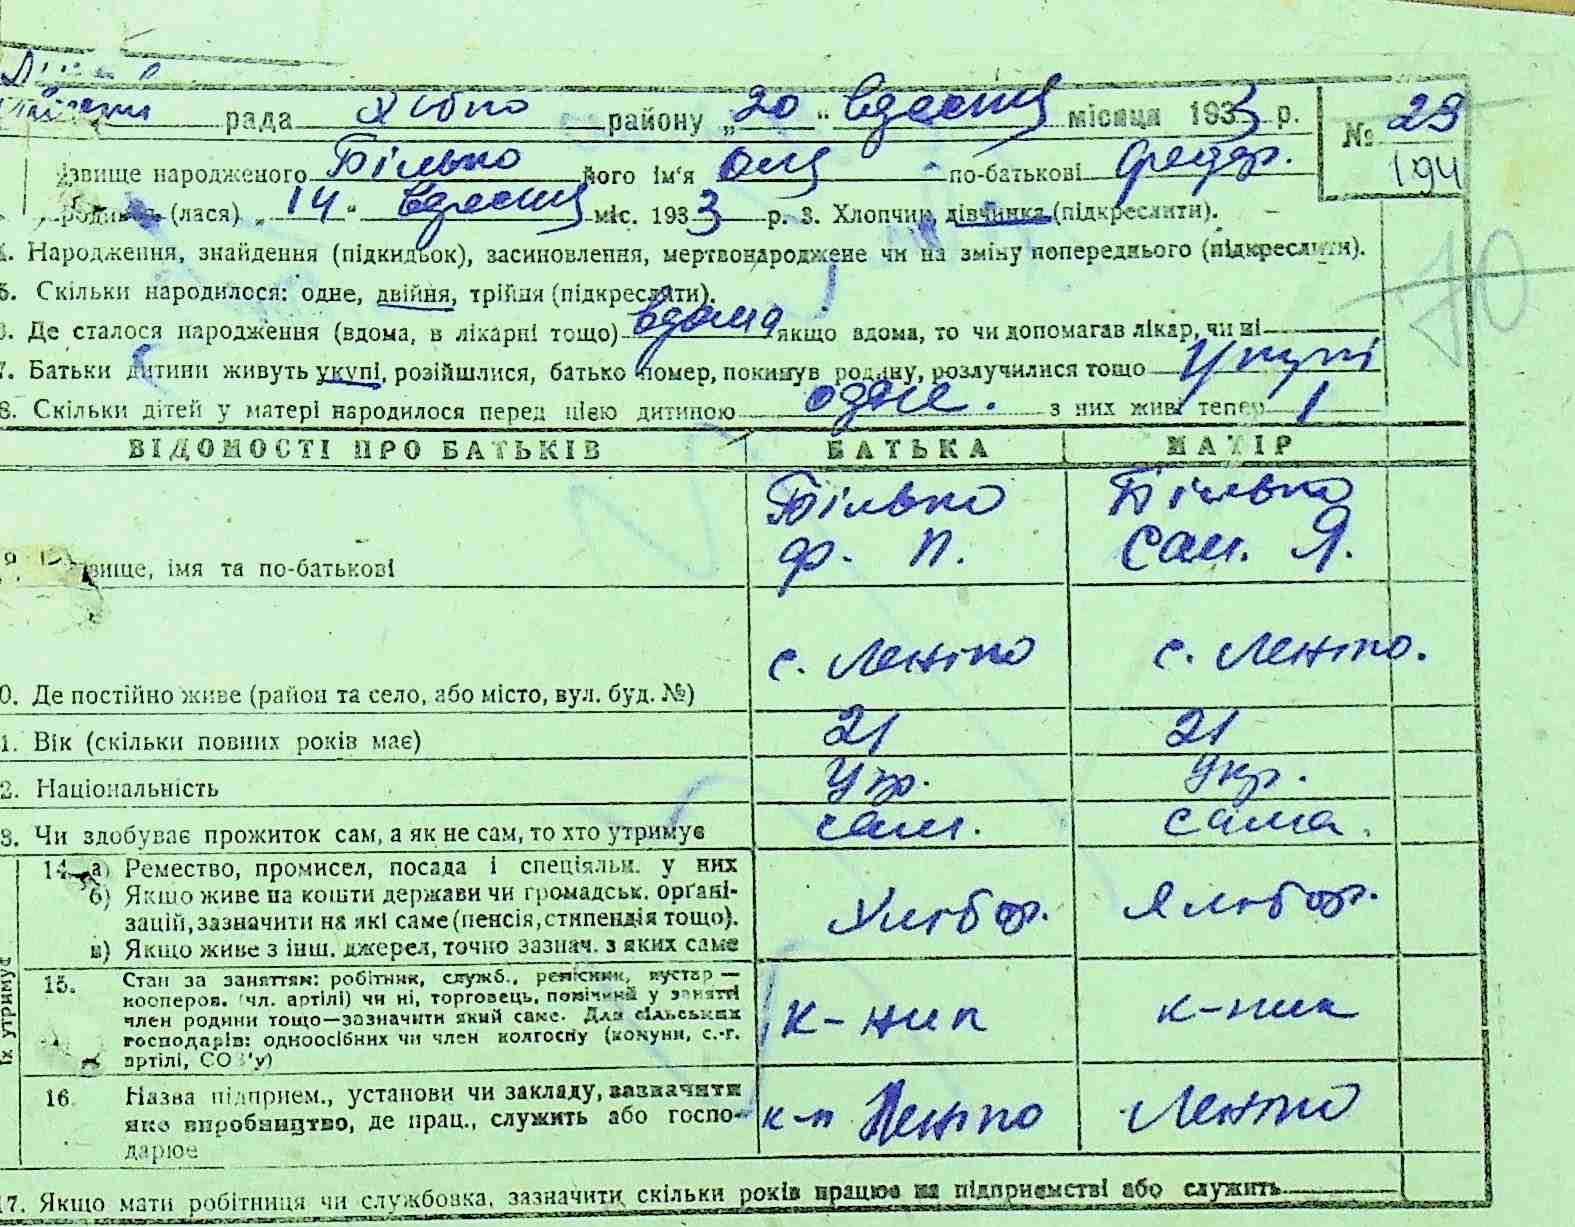 рада района „20" вресня місяця 1933 р. № 29
Прізвище народженого Білько його ім'я Оля по-батькові Федор. 194
родився (лася) „14" вресня міс. 1933 р. 3. Хлопчик, дівчинка (підкреслити).
4. Народження, знайдення (підкидьок), засиновлення, мертвонароджене чи на зміну попереднього (підкреслити).
5. Скільки народилося: одне, двійня, трійня (підкреслити).
6. Де сталося народження (вдома, в лікарні тощо) вдома якщо вдома, то чи допомагав лікар, чи ні
7. Батьки дитини живуть укупі, розійшлися, батько помер, покинув родину, розлучилися тощо укупі
8. Скільки дітей у матері народилося перед цією дитиною одне. з них живі тепер 1
70
ВІДОМОСТІ ПРО БАТЬКІВ БАТЬКА МАТІР
Білько Білько
9. вище, імя та по-батькові Ф. П. Сам. Я.
10. Де постійно живе (район та село, або місто, вул. буд. №) с. Леніно с. Леніно.
11. Вік (скільки повних років має) 21 21
12. Національність Укр. Укр.
13. Чи здобуває прожиток сам, а як не сам, то хто утримує сам. сама.
їх утримує
14. а) Ремество, промисел, посада і спеціяльн. у них
б) Якщо живе на кошти держави чи громадськ. органі-
зацій, зазначити на які саме (пенсія, стипендія тощо). Хлібор. Хлібор.
в) Якщо живе з інш. джерел, точно зазнач. з яких саме
15. Стан за заняттям: робітник, служб., ремісник, кустар —
кооперов. (чл. артілі) чи ні, торговець, помічний у занятті
член родини тощо—зазначити який саме. Для сільських к-ник к-ник
господарів: одноосібних чи член колгоспу (комуни, с.-г.
артілі, СОЗ'у)
16. Назва підприєм., установи чи закладу, зазначити
яке виробництво, де прац., служить або госпо- к-п Леніно Леніно
дарює
17. Якщо мати робітниця чи службовка, зазначити скільки років працює на підприємстві або служить